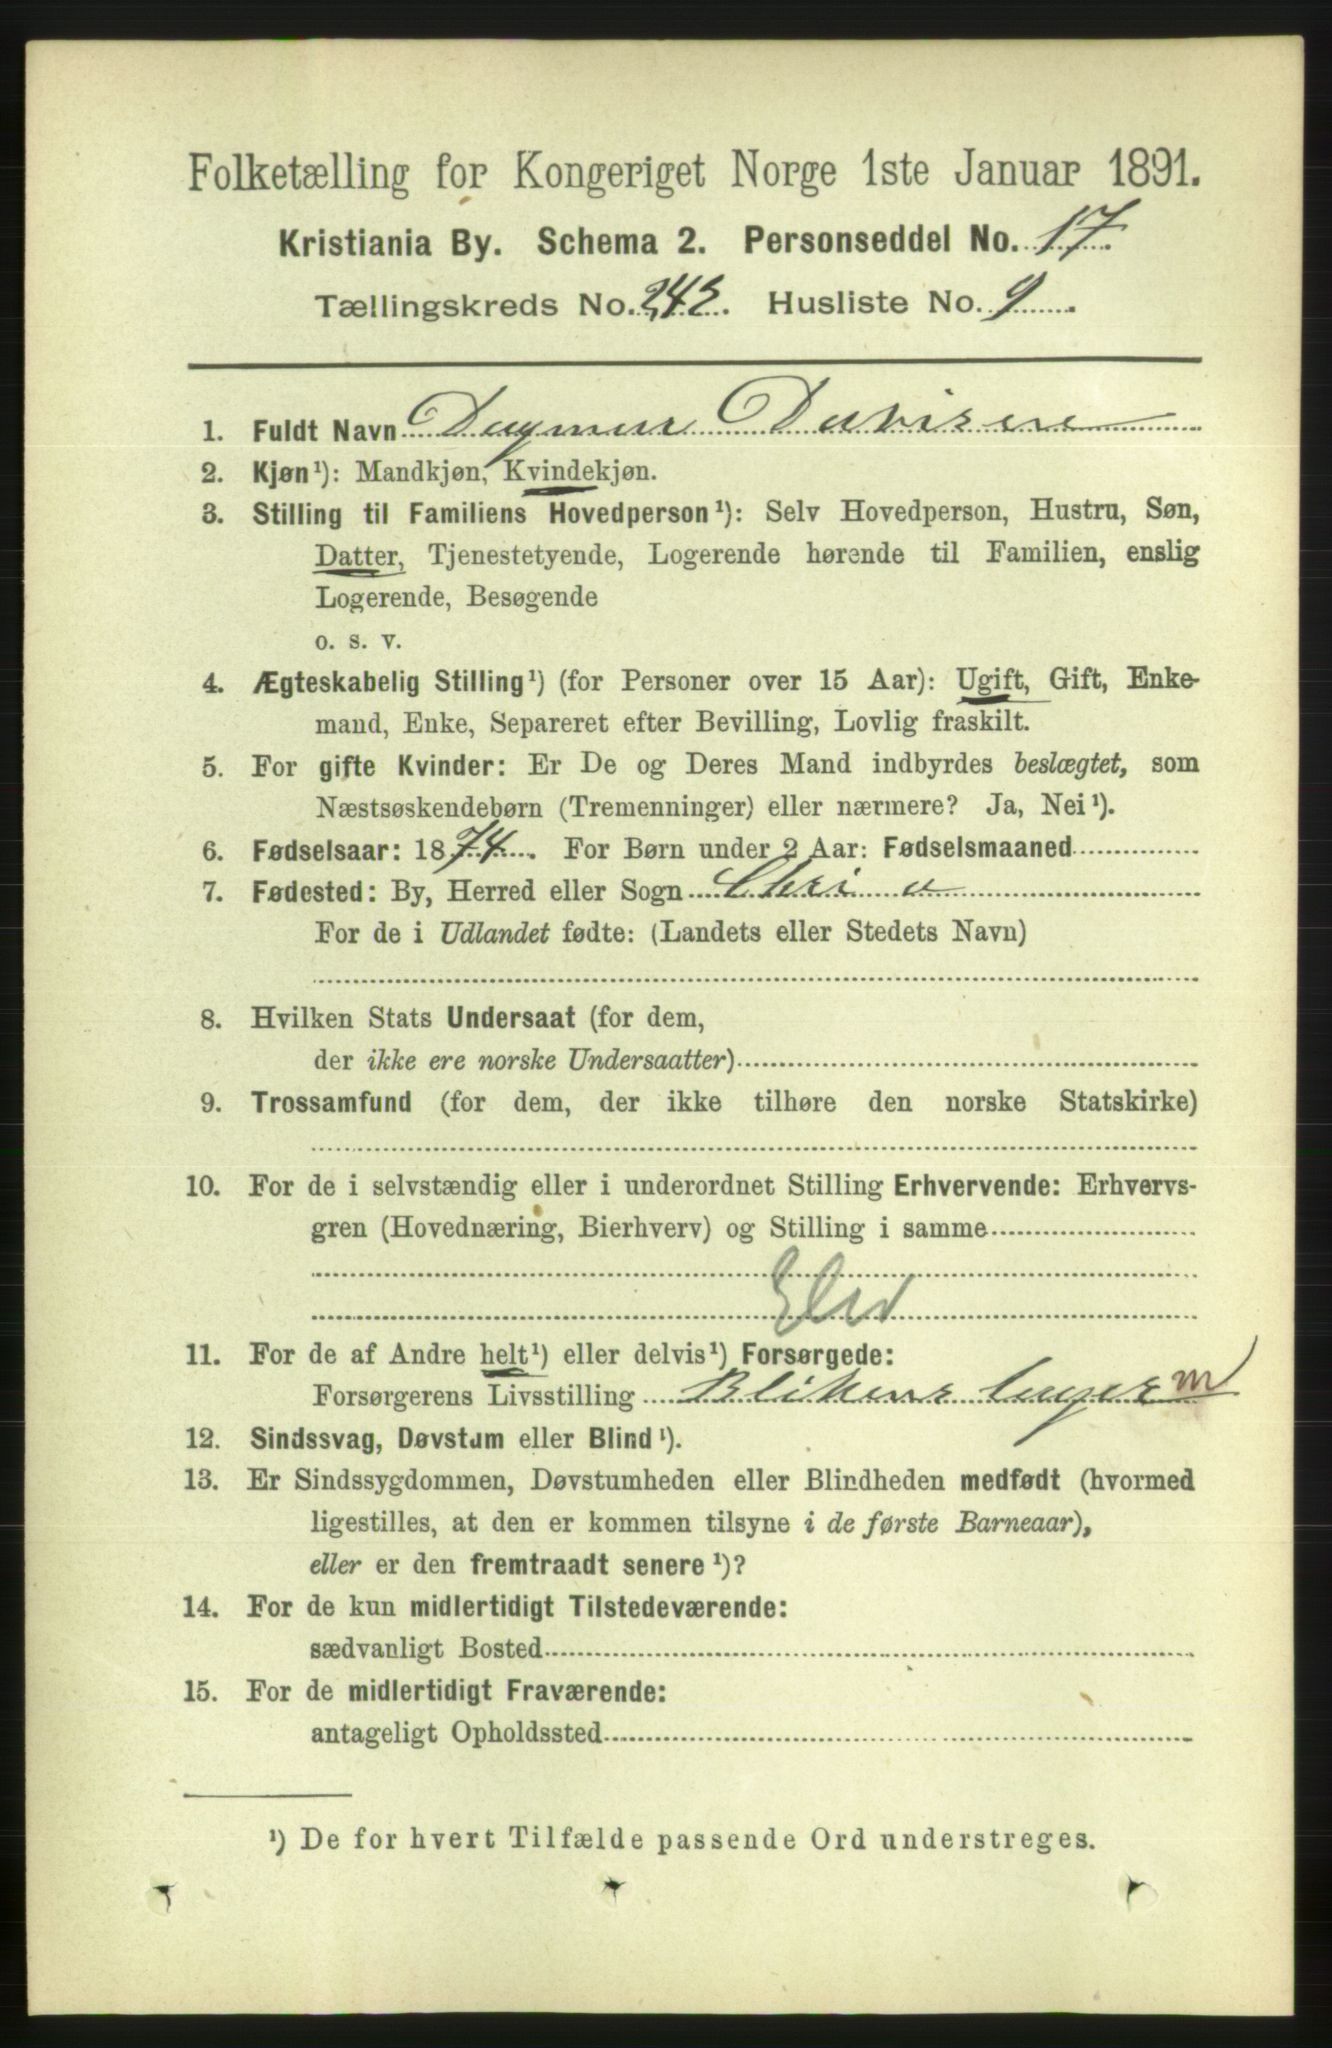 Folketælling for Kongeriget Norge 1ste Januar 1891.
Kristiania By. Schema 2. Personseddel No. 17.
Tællingskreds No. 243. Husliste No. 9
1. Fuldt Navn Dagmar Davisen
2. Kjøn¹): Mandkjøn, Kvindekjøn.
3. Stilling til Familiens Hovedperson¹): Selv Hovedperson, Hustru, Søn,
Datter, Tjenestetyende, Logerende hørende til Familien, enslig
Logerende, Besøgende
o. s. v.
4. Ægteskabelig Stilling¹) (for Personer over 15 Aar): Ugift, Gift, Enke-
mand, Enke, Separeret efter Bevilling, Lovlig fraskilt.
5. For gifte Kvinder: Er De og Deres Mand indbyrdes beslægtet, som
Næstsøskendebørn (Tremenninger) eller nærmere? Ja, Nei¹).
6. Fødselsaar: 1874. For Børn under 2 Aar: Fødselsmaaned
7. Fødested: By, Herred eller Sogn Chri a
For de i Udlandet fødte: (Landets eller Stedets Navn)
8. Hvilken Stats Undersaat (for dem,
der ikke ere norske Undersaatter)
9. Trossamfund (for dem, der ikke tilhøre den norske Statskirke)
10. For de i selvstændig eller i underordnet Stilling Erhvervende: Erhvervs-
gren (Hovednæring, Bierhverv) og Stilling i samme
Elev
11. For de af Andre helt¹) eller delvis¹) Forsørgede:
Forsørgerens Livsstilling Blikenslager m
12. Sindssvag, Døvstum eller Blind¹).
13. Er Sindssygdommen, Døvstumheden eller Blindheden medfødt (hvormed
ligestilles, at den er kommen tilsyne i de første Barneaar),
eller er den fremtraadt senere¹)?
14. For de kun midlertidigt Tilstedeværende:
sædvanligt Bosted
15. For de midlertidigt Fraværende:
antageligt Opholdssted
¹) De for hvert Tilfælde passende Ord understreges.